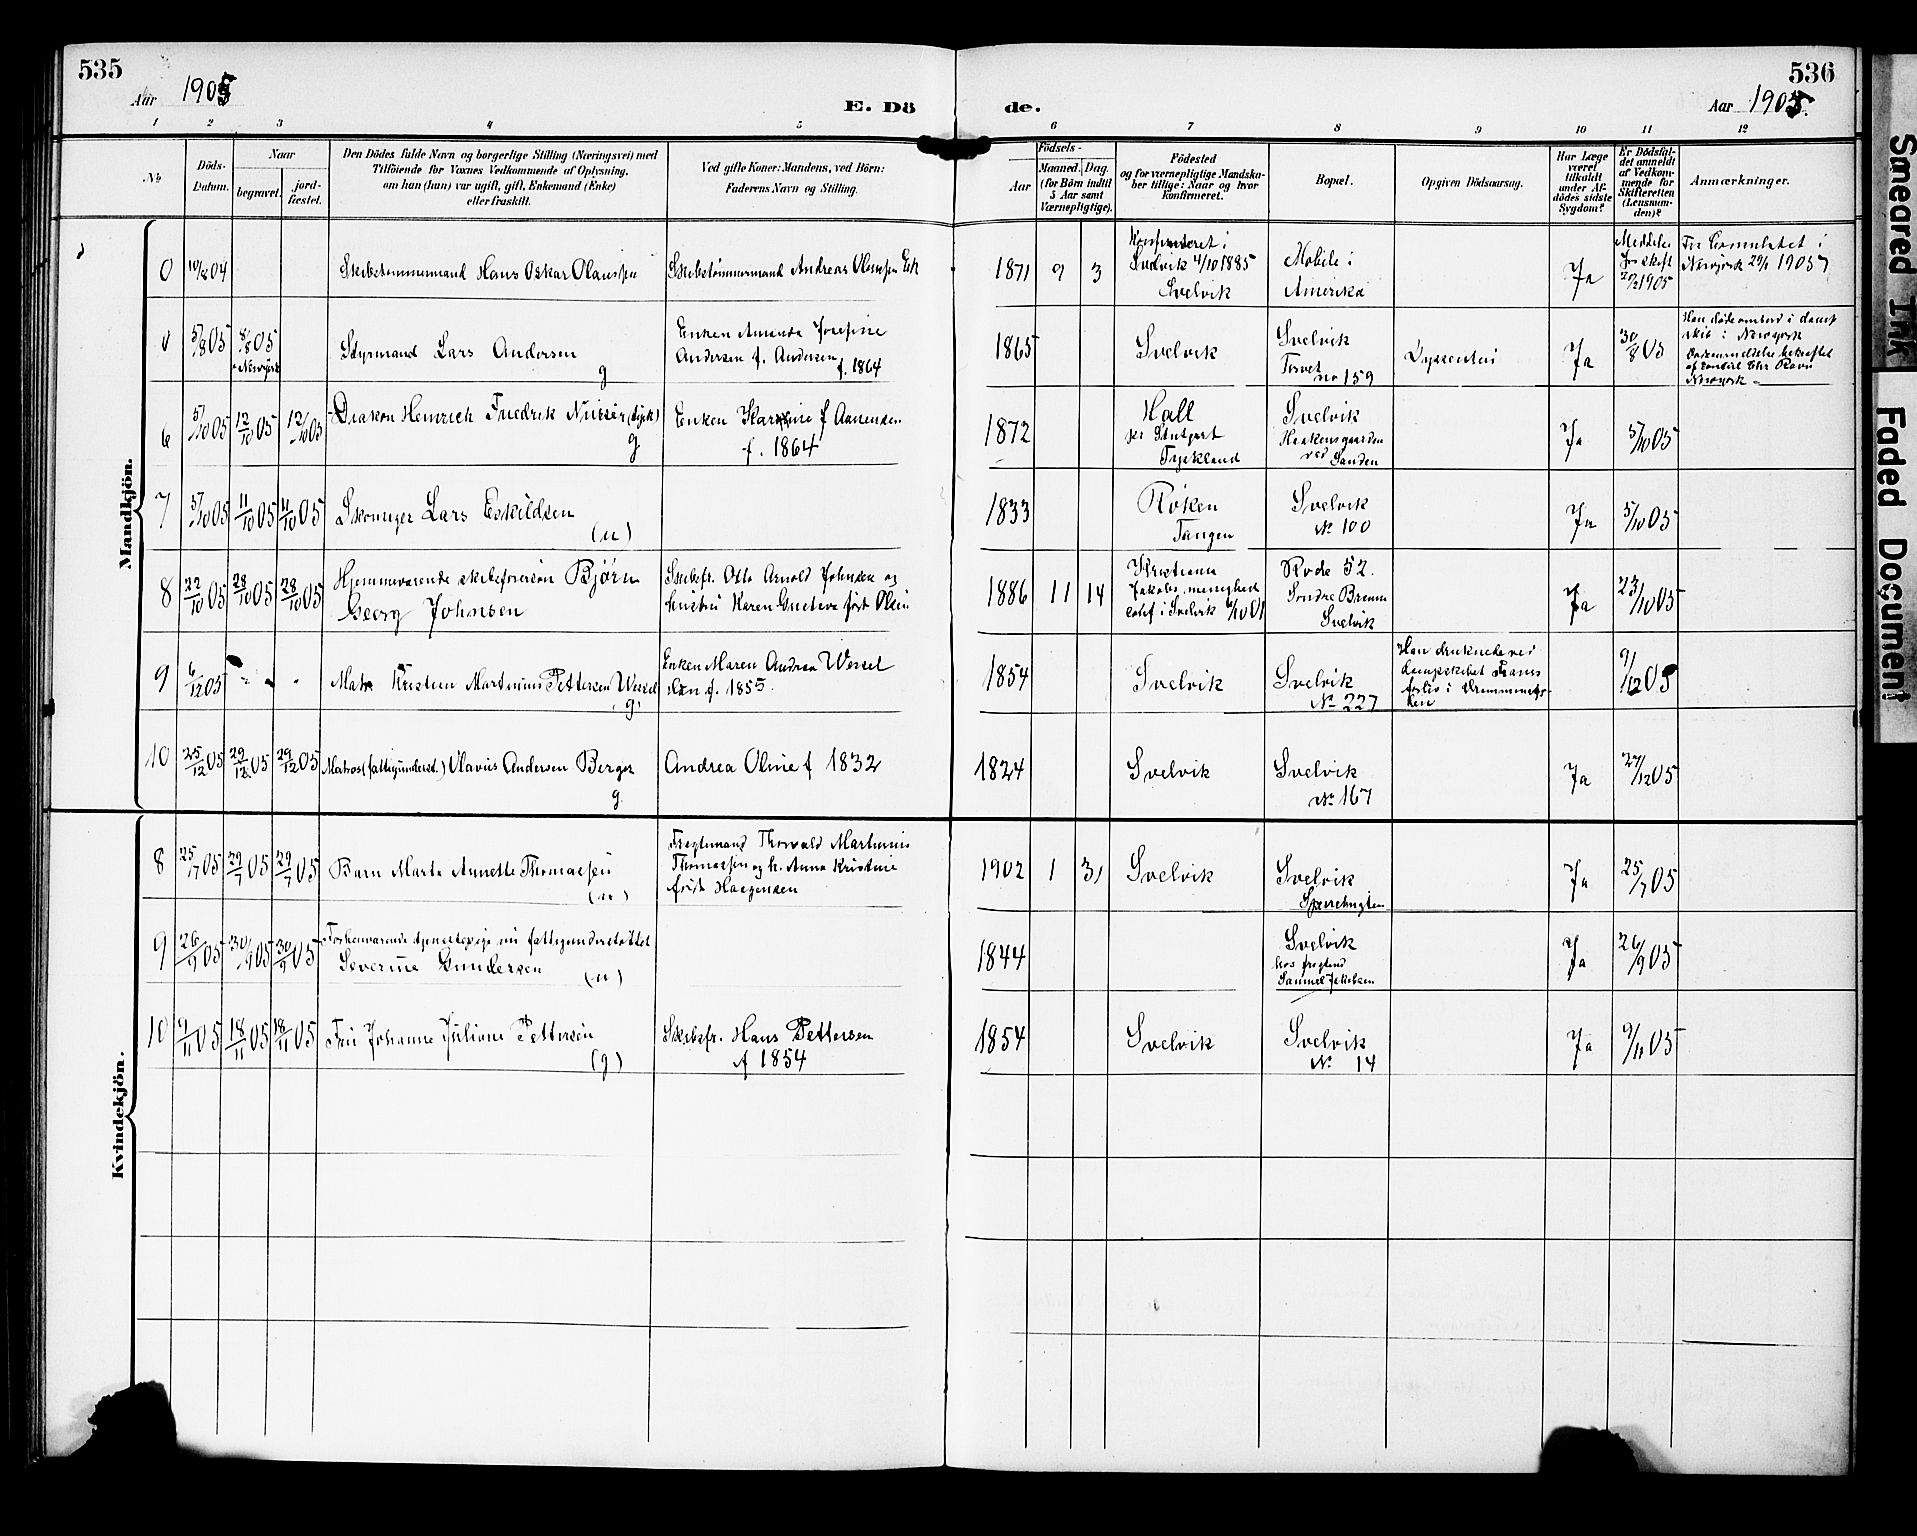 535
Aar 1905
E. Dö
de.
Aar 1905.
536
1 2 3 4 5 6 7 8 9 10 11 12
№
Döds-
Datum.
Naar
begravet.
jord-
fæstet.
Den Dödes fulde Navn og borgerlige Stilling (Næringsvei) med
Tilföiende for Voxnes Vedkommende af Oplysning,
om han (hun) var ugift, gift, Enkemand (Enke)
eller fraskilt.
Ved gifte Koner: Mandens, ved Börn:
Faderens Navn og Stilling.
Födsels-
Aar
Maaned.
Dag.
(for Börn indtil
5 Aar samt
Værnepligtige).
Födested
og for værnepligtige Mandska-
ber tillige: Naar og hvor
konfirmeret.
Bopæl.
Opgiven Dödsaarsag.
Har Læge
været
tilkaldt
under Af-
dödes sidste
Sygdom?
Er Dödsfal-
det anmeldt
af Vedkom-
mende for
Skifteretten
(Lensman-
den)?
Anmærkninger.
Mandkjön.
0
Skibstømmermand Hans Oskar Olaussen
Skibstømmermand Andreas Olaussen Esk
1871 9 3
Konfirmeret i
Svelvik 4/10 1885
Svelvik
Mobile i
Amerika
Ja
Meddelee
1905
For Consulatet i
Newyork 29/1 1905
5/8 05
8/8 05
Newyork
Styrmand Lars Andersen
g
Enken Amanda Josefine
Andersen f. Andersen
f. 1864
1865
Svelvik
Svelvik
Torvet
no 159
Dyssenteri
Ja
30/8 05
Han døde ombord i damp
skib i Newyork
af consul Chr Ravn
Newyork
6
5/10 05
12/10 05
12/10 05
Diakon Heinrich Friedrik (tysk)
g
Enken f Aanensen
f. 1864
1872
Hall
pr Stutgart
Tyskland
Svelvik
Haakensgaarden
ved Sanden
Ja
5/10 05
7
5/10 05
11/10 05
11/10 05
Skomager Lars Eskildsen
(u)
1833
Røken
Tangen
Svelvik
№ 100
Ja
5/10 05
8
22/10 05
28/10 05
28/10 05
Hjemmeværende skibsførersøn Bjørn
Georg Johnsen
Skibsfr. Otto Arnold Johnsen og
hustru Karen Gustava født Olsen
1886 11 14
Kristiania
Jakobs menighed
conf i Svelvik 6/10 01
Rode 52.
Søndre Brenna
Svelvik
Ja
23/10 05
9
6/12 05
Matr Kristian Martinius Pettersen Wessel
g.
Enken Maren Andrea Wessel
f. 1855.
1854
Svelvik
Svelvik
№ 227
Han druknede ved
dampskibet Frams
forlis i Drammensfjor-
den
9/12 05
10
25/12 05
29/12 05
29/12 05
Matros (fattigunderst.) Olavus Andersen Berger
g.
Andrea Oline f 1832
1824
Svelvik
Svelvik
№ 167
Ja
27/12 05
Kvindekjön.
8
25/7 05
29/7 05
29/7 05
Barn Marta Annette Thomassen
(u)
Fragtemand Thorvald Martinius
Thomassen og h. Anna Kristine
født Haagensen
1902 1 31
Svelvik
Svelvik
Ja
25/7 05
9
26/9 05
30/9 05
30/9 05
Forhenværende tjenestepige nu fattigunderstøttet
Severine Gundersen
(u)
1844
Svelvik
hos fragtmd
Samuel Jakobsen
Ja
26/9 05
10
9/11 05
18/11 05
18/11 05
Fru Johanne Juliane Pettersen
(g)
Skibsfr. Hans Pettersen
f 1854
1854
Svelvik
Svelvik
№ 14
Ja
9/11 05
Smeared Ink
Faded Document